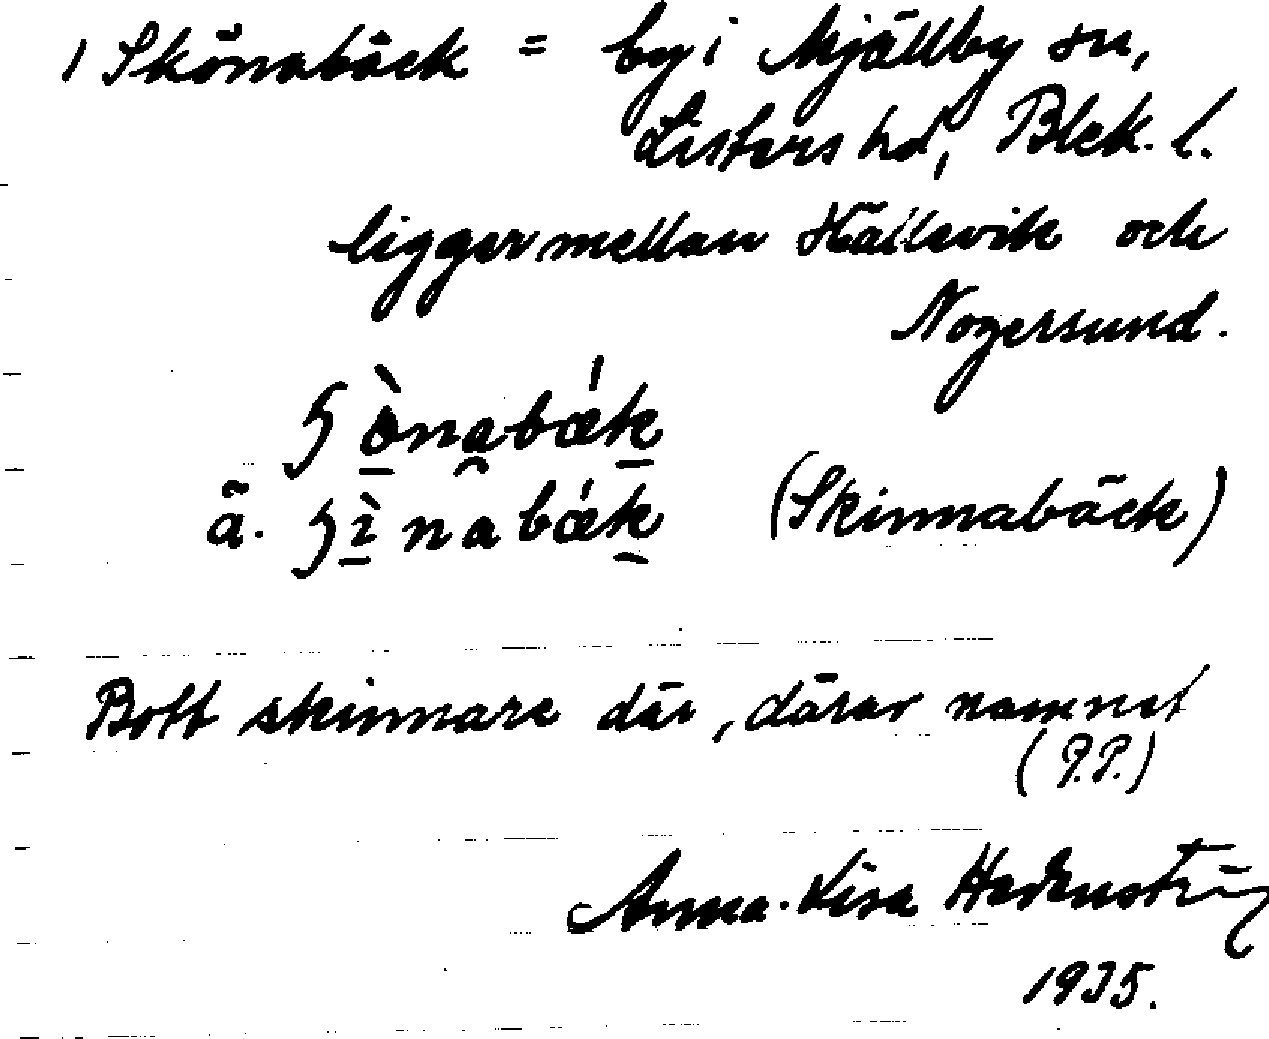 1 Skönabäck = by i Mjällby sn,
Listers hd, Blek. l.
ligger mellan Hällevik och
Nogersund.
ʃö̀nabǽk
ä. ʃìnabǽk (Skinnabäck)
Bott skinnare där, därav namnet
(P.P.)
Anna-Lisa
1935.